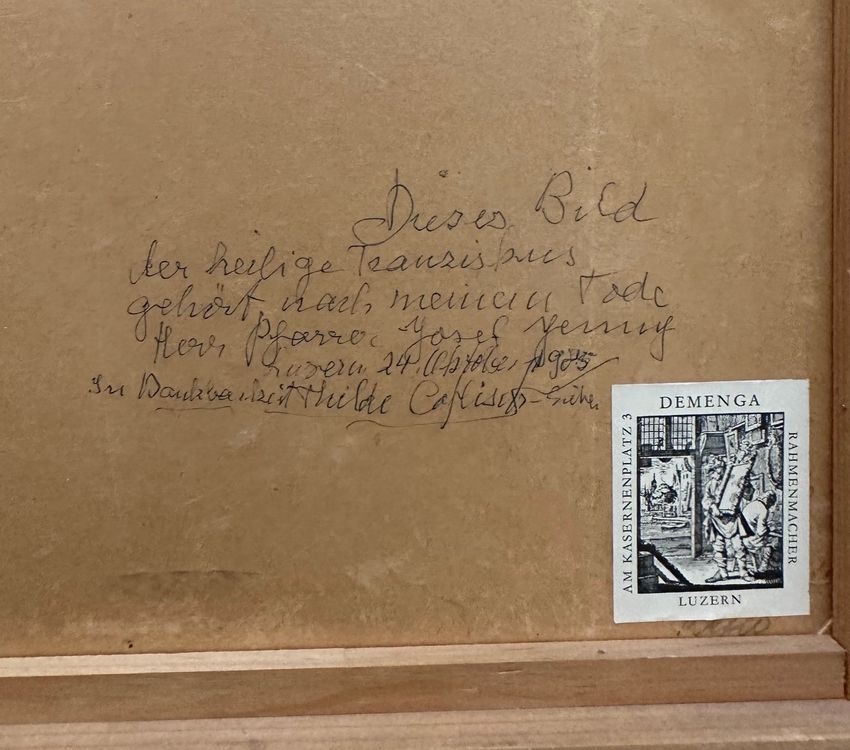 Dieses Bild
der heilige Franziskus
gehört nach meinem Tode
Herr Pfarrer Josef Jenny
Luzern 24. Oktober 1985
In Dankbarkeit Thilde
DEMENGA
AM KASERNENPLATZ 3
RAHMENMACHER
LUZERN